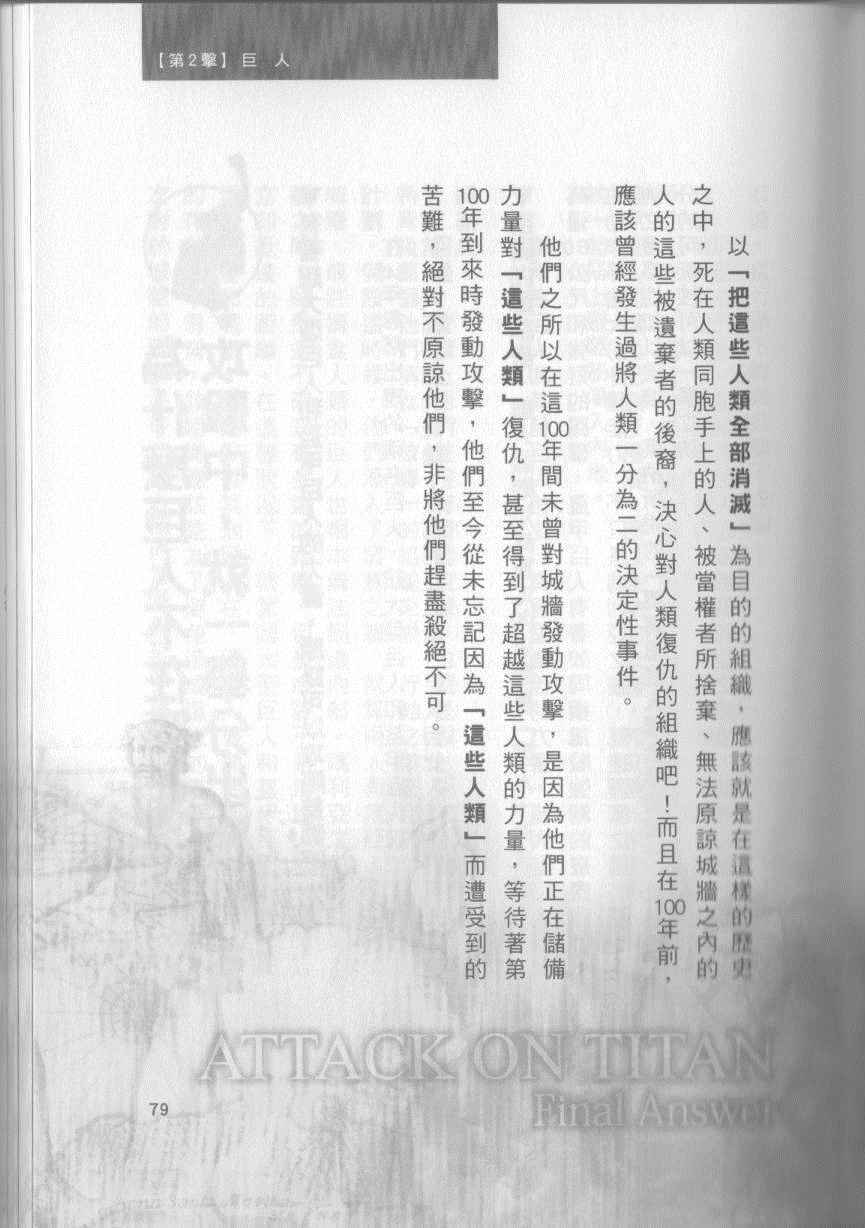 【第2擊】巨 人
以「把這些人類全部消滅」為目的的組織，應該就是在這樣的歷史
之中，死在人類同胞手上的人、被當權者所捨棄、無法原諒城牆之內的
人的這些被遺棄者的後裔，決心對人類復仇的組織吧！而且在100年前，
應該曾經發生過將人類一分為二的決定性事件。
他們之所以在這100年間未曾對城牆發動攻擊，是因為他們正在儲備
力量對「這些人類」復仇，甚至得到了超越這些人類的力量，等待著第
100年到來時發動攻擊，他們至今從未忘記因為「這些人類」而遭受到的
苦難，絕對不原諒他們，非將他們趕盡殺絕不可。
ATTACK ON TITAN
Final Answer
79